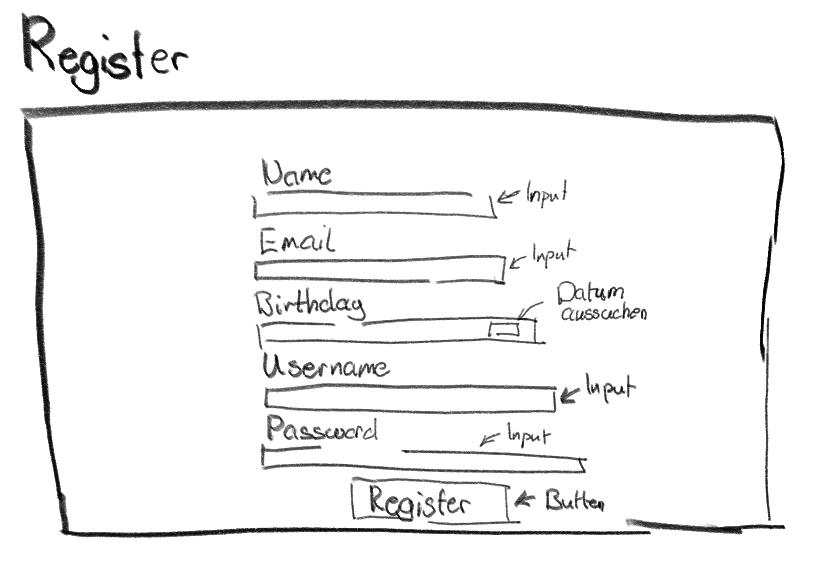 Register
Name
Input
Email
Input
Birthday
Datum
aussuchen
Username
Input
Password
Input
Register
Button